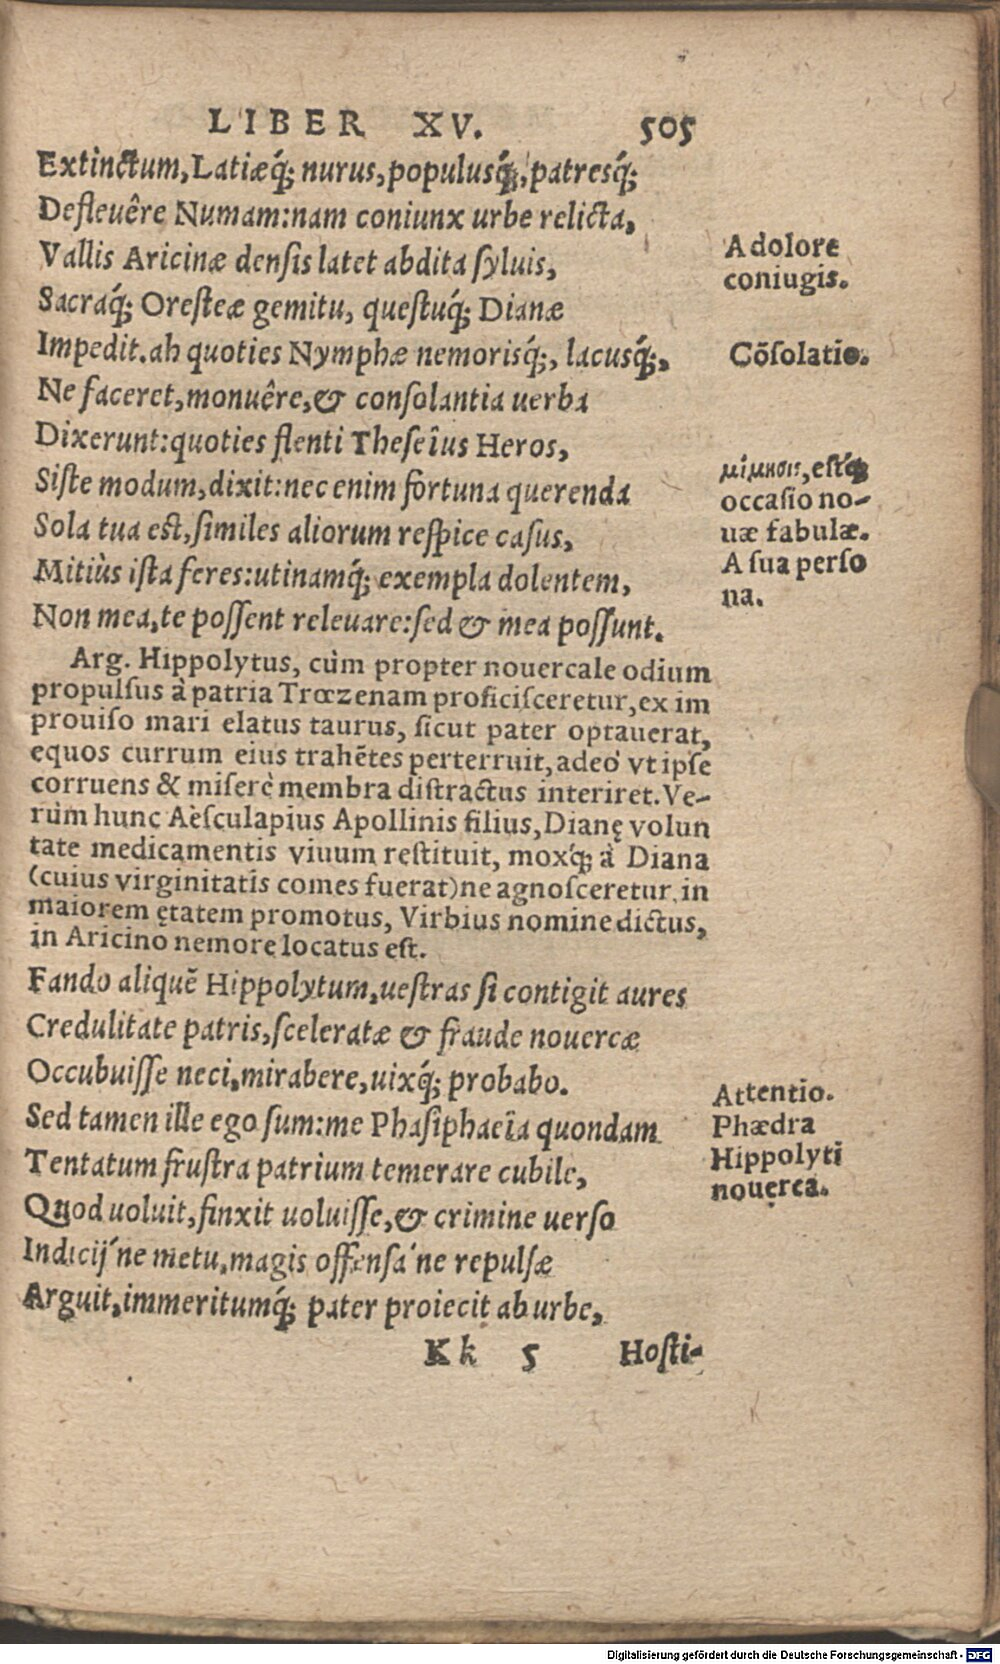 LIBER XV. 505
Extinctum, Latiæq́; nurus, populusq́;, patresq́;
Defleuêre Numam: nam coniunx urbe relicta,
Vallis Aricinæ densis latet abdita syluis,
Sacraq́; Oresteæ gemitu, questuq́; Dianæ
Impedit. ah quoties Nymphæ nemorisq́;, lacusq́;,
Ne faceret, monuêre, & consolantia uerba
Dixerunt: quoties flenti Theseîus Heros,
Siste modum, dixit: nec enim fortuna querenda
Sola tua est, similes aliorum respice casus,
Mitiùs ista feres: utinamq́; exempla dolentem,
Non mea, te possent releuare: sed & mea possunt.
A dolore
coniugis.
Cōsolatio.
μίμησις, estq́;
occasio no-
uæ fabulæ.
A sua perso
na.
Arg. Hippolytus, cùm propter nouercale odium
propulsus à patria Trœzenam proficisceretur, ex im
prouiso mari elatus taurus, sicut pater optauerat,
equos currum eius trahētes perterruit, adeò vt ipse
corruens & miserè membra distractus interiret. Ve-
rùm hunc Aesculapius Apollinis filius, Dianę volun
tate medicamentis viuum restituit, moxq́; à Diana
(cuius virginitatis comes fuerat) ne agnosceretur, in
maiorem ętatem promotus, Virbius nomine dictus,
in Aricino nemore locatus est.
Fando aliquē Hippolytum, uestras si contigit aures
Credulitate patris, sceleratæ & fraude nouercæ
Occubuisse neci, mirabere, uixq́; probabo.
Sed tamen ille ego sum: me Phasiphaeîa quondam
Tentatum frustra patrium temerare cubile,
Quod uoluit, finxit uoluisse, & crimine uerso
Indicij´ne metu, magis offensa´ne repulsæ
Arguit, immeritumq́; pater proiecit ab urbe,
Attentio.
Phædra
Hippolyti
nouerca.
Kk 5 Hosti-
Digitalisierung gefördert durch die Deutsche Forschungsgemeinschaft - DFG